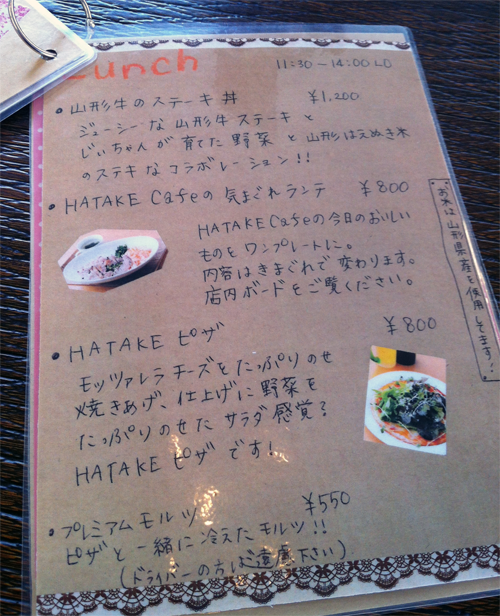 Lunch 11:30-14:00 LO
• 山形牛のステーキ丼 ¥1,200
ジューシーな山形牛ステーキと
じぃちゃんが育てた野菜と山形はえぬき米
のステキなコラボレーション!!
• HATAKE Cafeの気まぐれランテ ¥800
HATAKE Cafeの今日のおいしい
ものをワンプレートに。
内容はきまぐれで変わります。
店内ボードをご覧ください。
お米は山形県産を使用してます!
• HATAKE ピザ ¥800
モッツァレラチーズをたっぷりのせ
焼きあげ、仕上げに野菜を
たっぷりのせたサラダ感覚な
HATAKE ピザです!
• プレミアムモルツ ¥550
ピザと一緒に冷えたモルツ!!
(ドライバーの方はご遠慮下さい)